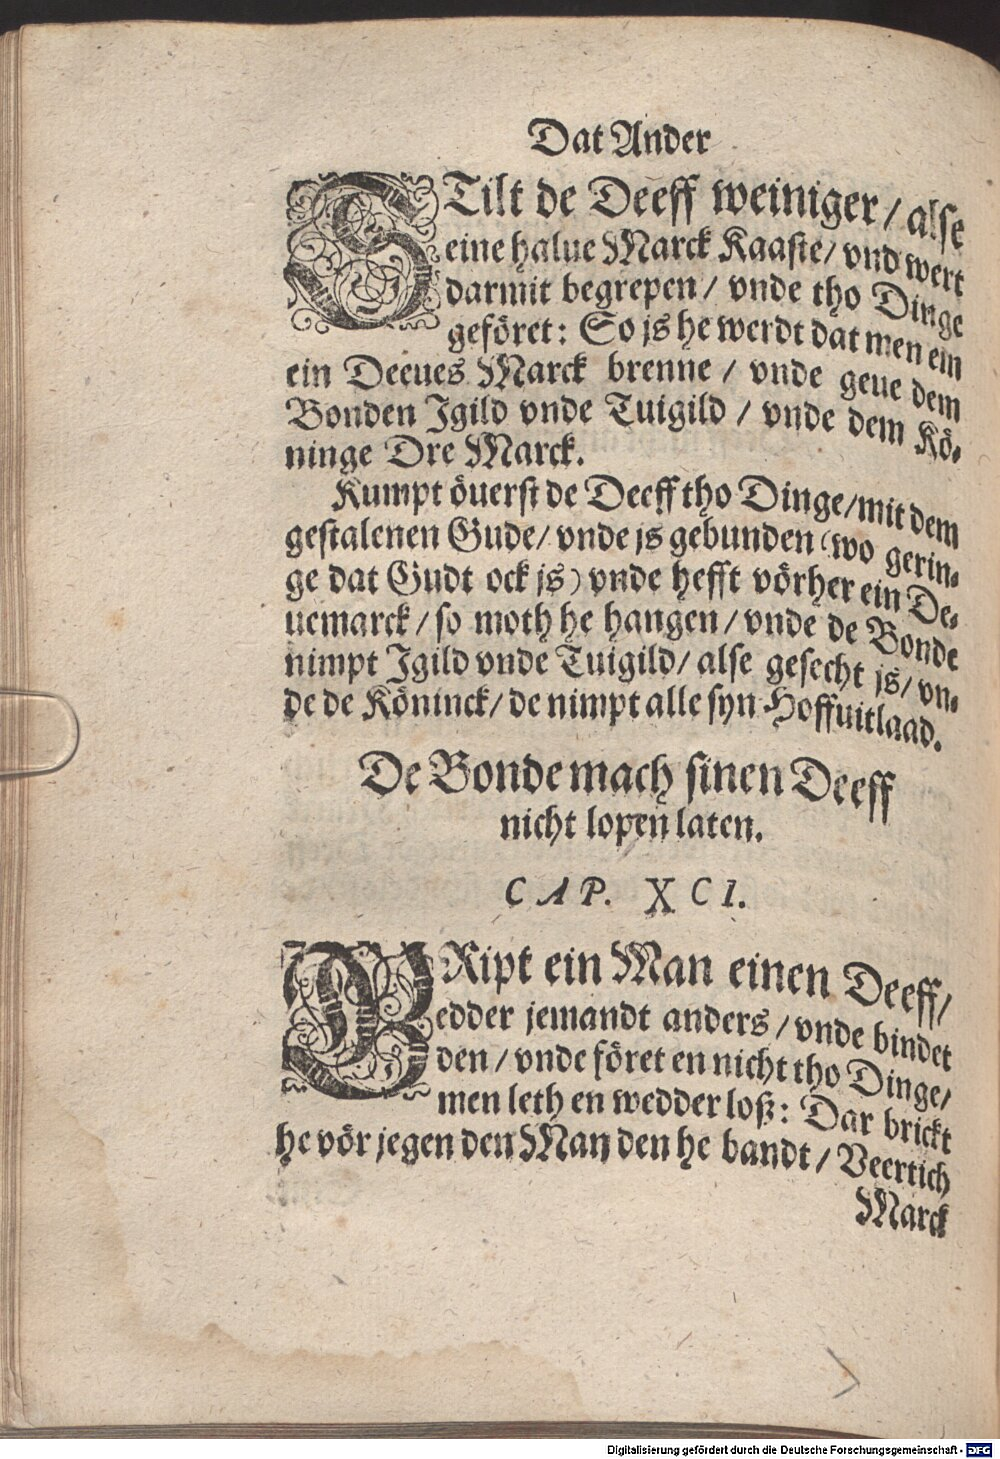 Dat Ander
STilt de Deeff weiniger / alse
eine halue Marck Kaaste / vnd wert
darmit begrepen / vnde tho Dinge
geföret: So js he werdt dat men ein
ein Deeues Marck brenne / vnde geue dem
Bonden Jgild vnde Tuigild / vnde dem Kö-
ninge Dre Marck.
Kumpt öuerst de Deeff tho Dinge / mit dem
gestalenen Gude / vnde js gebunden (wo gerin-
ge dat Gudt ock js) vnde hefft vörher ein De-
uemarck / so moth he hangen / vnde de Bonde
nimpt Jgild vnde Tuigild / alse gesecht js / vn-
de de Köninck / de nimpt alle syn Hoffuitlaad.
De Bonde mach sinen Deeff
nicht lopen laten.
CAP. XCI.
GRipt ein Man einen Deeff /
edder jemandt anders / vnde bindet
den / vnde föret en nicht tho Dinge /
men leth en wedder loß: Dar brickt
he vör jegen den Man den he bandt / Veertich
Marck
Digitalisierung gefördert durch die Deutsche Forschungsgemeinschaft - DFG